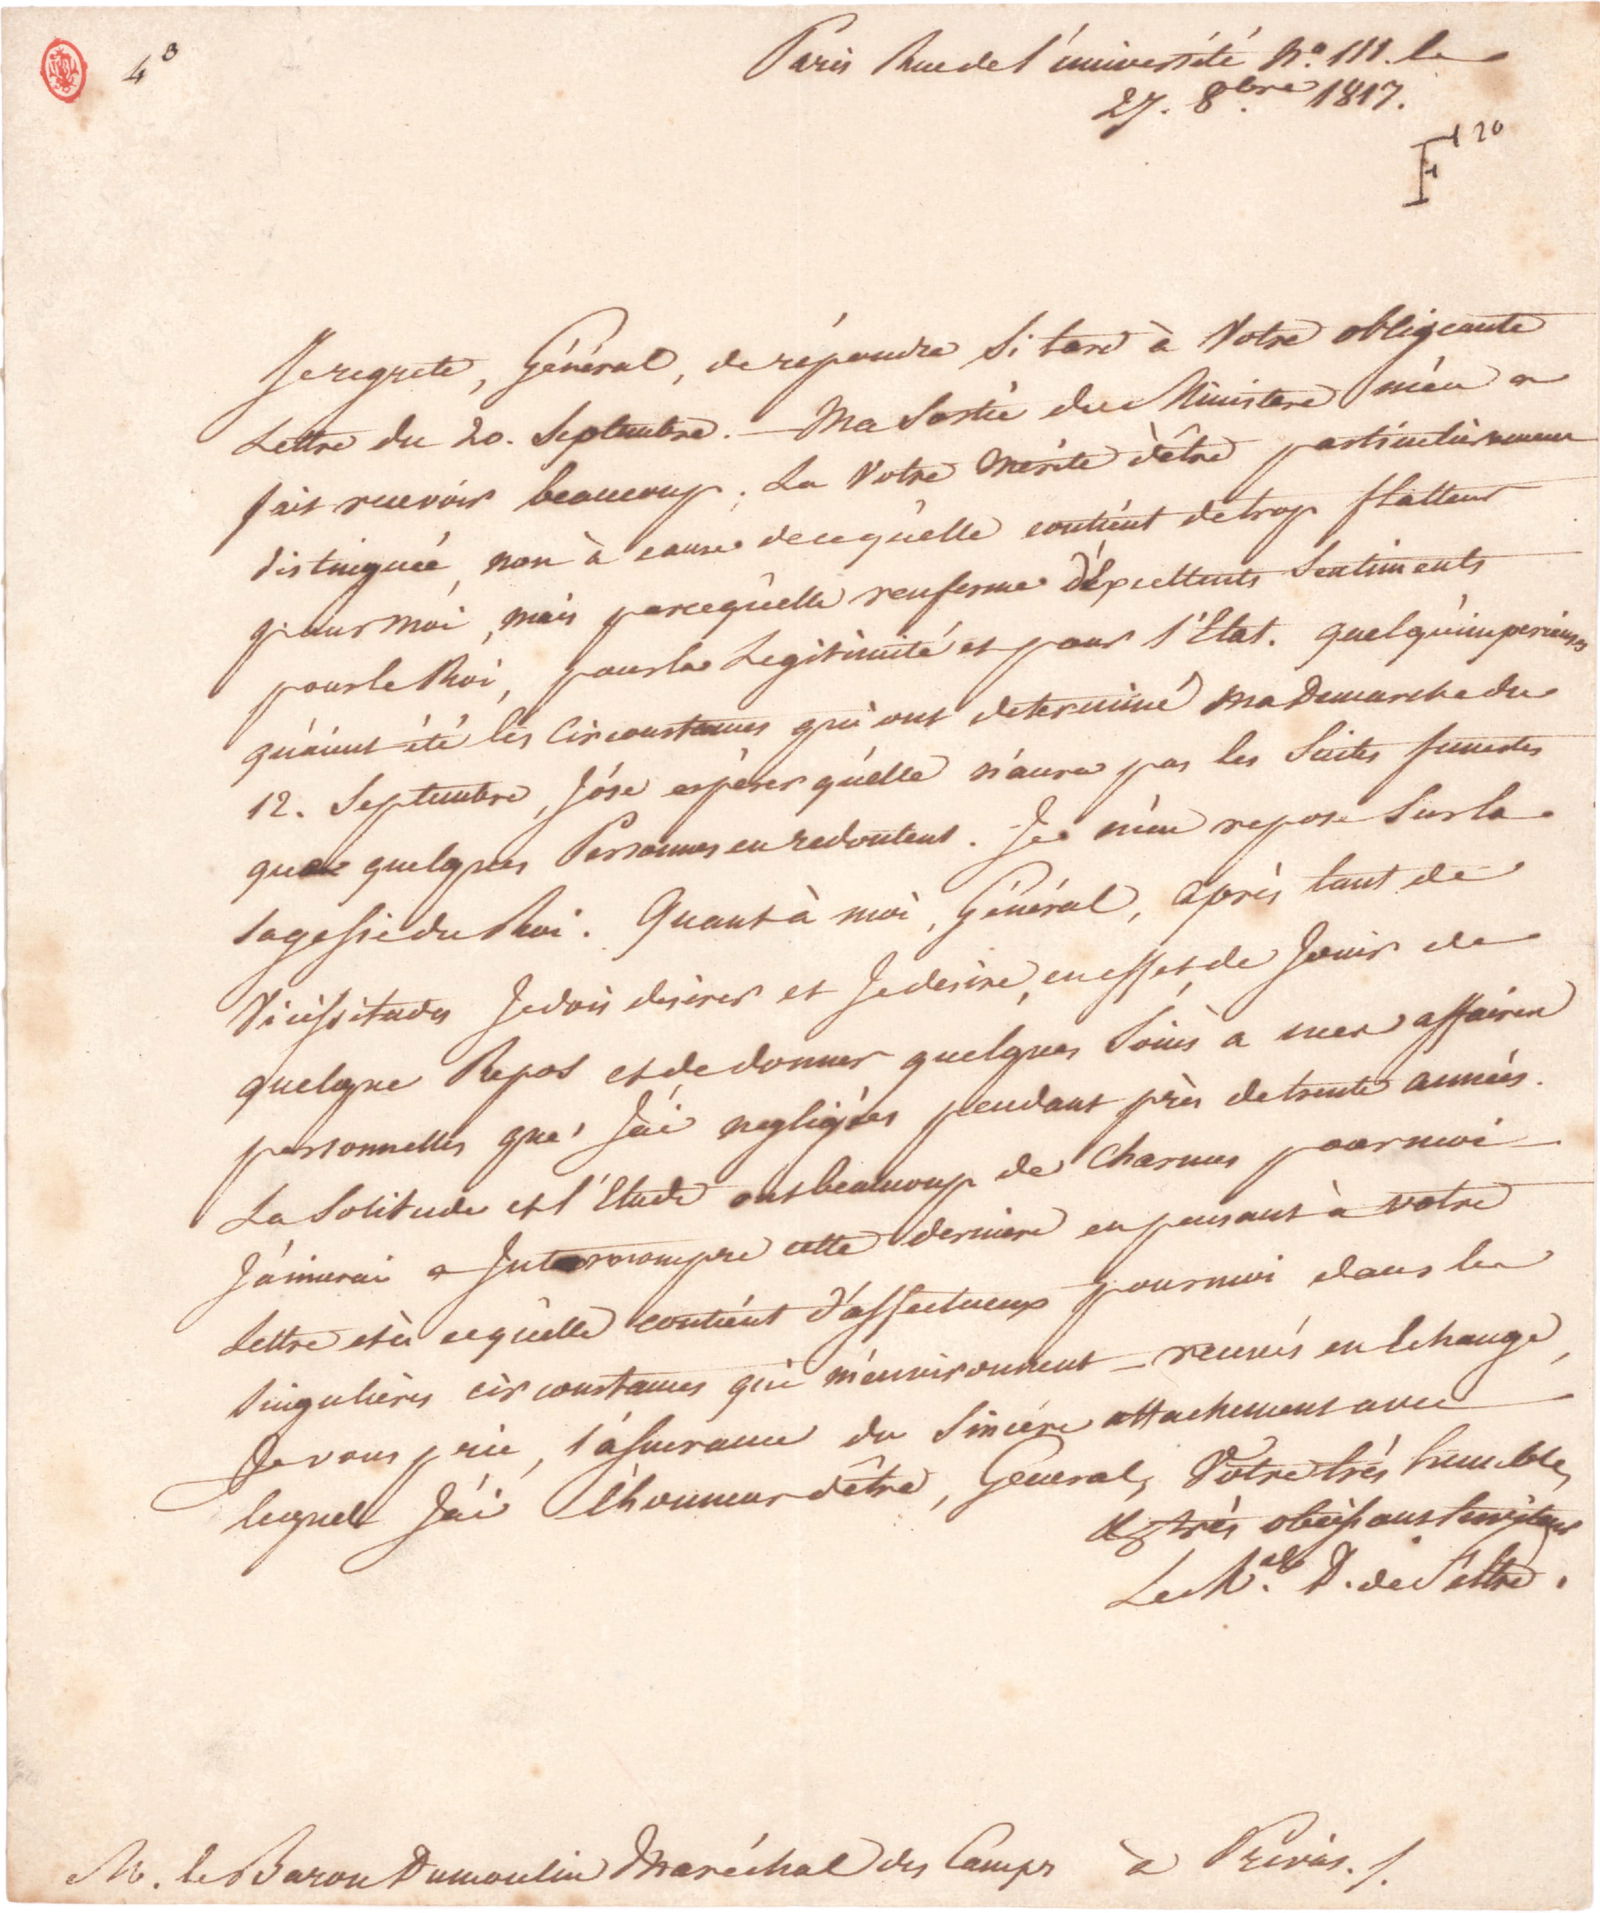 4³
Paris Rue de l'université N.° 111. le
27. 8.bre 1817.
F
Je regrete, Général, de répondre si tard à Votre obligeante
Lettre du 20. Septembre. — Ma sortie du Ministere m'en a
fait recevoir beaucoup. La Votre mérite d'être particulièrement
distinguée, non à cause de ce qu'elle contient de trop flatteur
pour moi, mais parcequ'elle renferme d'éxcellents sentiments
pour le Roi, pour la Legitimité et pour l'Etat. quelqu'imperieuses
qu'aient été les Circonstances qui ont determiné ma Demarche du
12. Septembre, J'ose espérer qu'elle n'aura pas les suites funestes
que quelques Personnes en redoutent. Je m'en repose sur la
sagesse du Roi. Quant à moi, Général, après tant de
Vicissitudes Je dois desirer et Je desire, en effet, de Jouir de
quelque Repos et de donner quelques soins a mes affaires
personnelles que J'ai negligées pendant près de trente années.
La Solitude et l'Etude ont beaucoup de Charmes pour moi
J'aimerai a Interrompre cette derniere en pensant à votre
Lettre et à ce qu'elle contient d'affectueux pour moi dans les
singulières circonstances qui m'environnent — recevés en Echange,
Je vous prie, l'assurance du sincère attachement avec
lequel J'ai l'honneur d'être, Général, Votre très humble
et très obéissant serviteur
Le M.al D. de Feltre.
M. le Baron Dumoulin Maréchal des Camps à Privas. /.